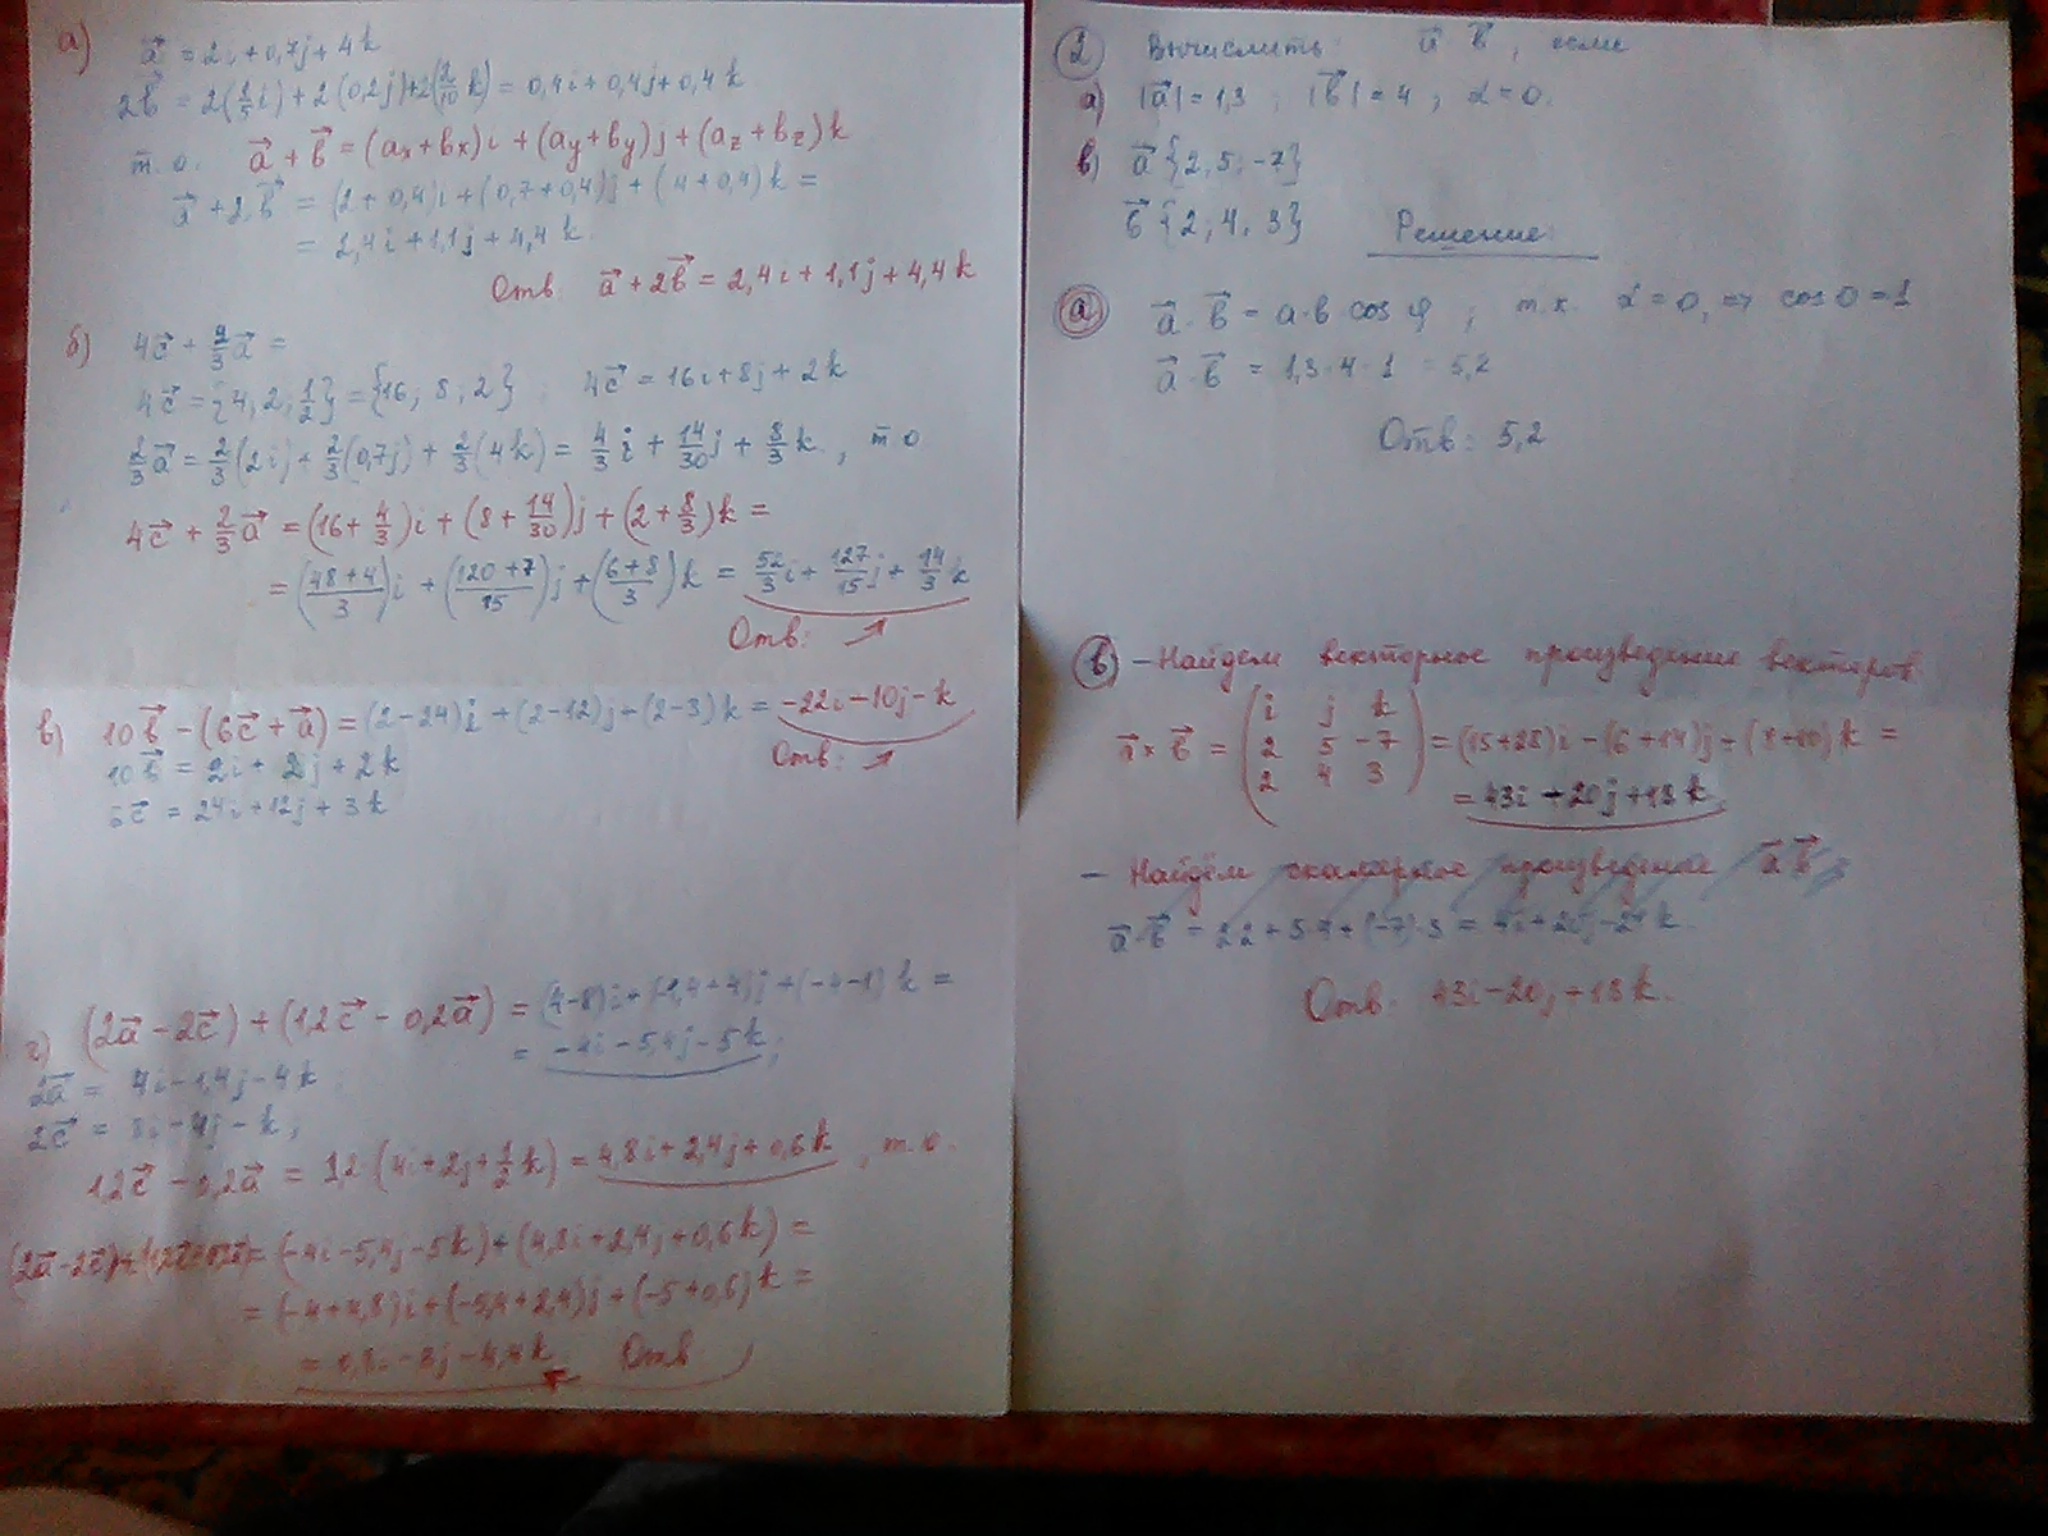 а) a⃗ = 2i + 0,7j + 4k
2b⃗ = 2(1/5 i) + 2(0,2j) + 2(2/10 k) = 0,4i + 0,4j + 0,4k
т.о. a⃗ + b⃗ = (ax + bx)i + (ay + by)j + (az + bz)k
a⃗ + 2b⃗ = (2 + 0,4)i + (0,7 + 0,4)j + (4 + 0,4)k =
= 2,4i + 1,1j + 4,4k.
Отв. a⃗ + 2b⃗ = 2,4i + 1,1j + 4,4k
б) 4c⃗ + 2/3 a⃗ =
4c⃗ = {4; 2; 1/2} = {16; 8; 2} ; 4c⃗ = 16i + 8j + 2k
2/3 a⃗ = 2/3(2i) + 2/3(0,7j) + 2/3(4k) = 4/3 i + 14/30 j + 8/3 k., т о
4c⃗ + 2/3 a⃗ = (16 + 4/3)i + (8 + 14/30)j + (2 + 8/3)k =
= ((48+4)/3)i + ((120+7)/15)j + ((6+8)/3)k = 52/3 i + 127/15 j + 14/3 k
Отв: ↗
в) 10b⃗ - (6c⃗ + a⃗) = (2-24)i + (2-12)j + (2-3)k = -22i - 10j - k
Отв: ↗
10b⃗ = 2i + 2j + 2k
6c⃗ = 24i + 12j + 3k
г) (2a⃗ - 2c⃗) + (1,2c⃗ - 0,2a⃗) = (4-8)i + (-1,4+4)j + (-4-1)k =
= -4i - 5,4j - 5k;
2a⃗ = 4i - 1,4j - 4k
2c⃗ = 8i - 4j - k;
1,2c⃗ - 0,2a⃗ = 1,2(4i + 2j + 1/2 k) = 4,8i + 2,4j + 0,6k , т.о.
(2a⃗ - 2c⃗) + = (-4i - 5,4j - 5k) + (4,8i + 2,4j + 0,6k) =
= (-4 + 4,8)i + (-5,4 + 2,4)j + (-5 + 0,6)k =
= 0,8i - 3j - 4,4k Отв
2 Вычислить a⃗ b⃗, если
а) |a⃗| = 1,3 ; |b⃗| = 4 ; α = 0.
в) a⃗ {2; 5; -7}
b⃗ {2; 4; 3} Решение:
а a⃗ · b⃗ = a·b cos φ ; т.к. α = 0, ⇒ cos 0 = 1
a⃗ · b⃗ = 1,3 · 4 · 1 = 5,2
Отв: 5,2
в - Найдем векторное произведение векторов
a⃗ × b⃗ = (i j k; 2 5 -7; 2 4 3) = (15+28)i - (6+14)j + (8+10)k =
= 43i - 20j + 18k
- Найдём скалярное произведение a⃗ b⃗
a⃗ · b⃗ = 2·2 + 5·4 + (-7)·3 = 4i + 20j - 21k
Отв. 43i - 20j + 18k.